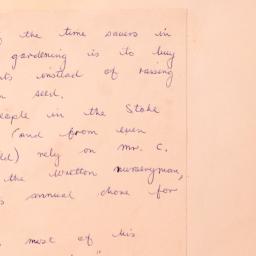 the time savers in
gardening is to buy
instead of raising
seed.
in the Stoke
(and from even
rely on Mr. C.
the Wretton nurseryman,
annual chore for
most of his